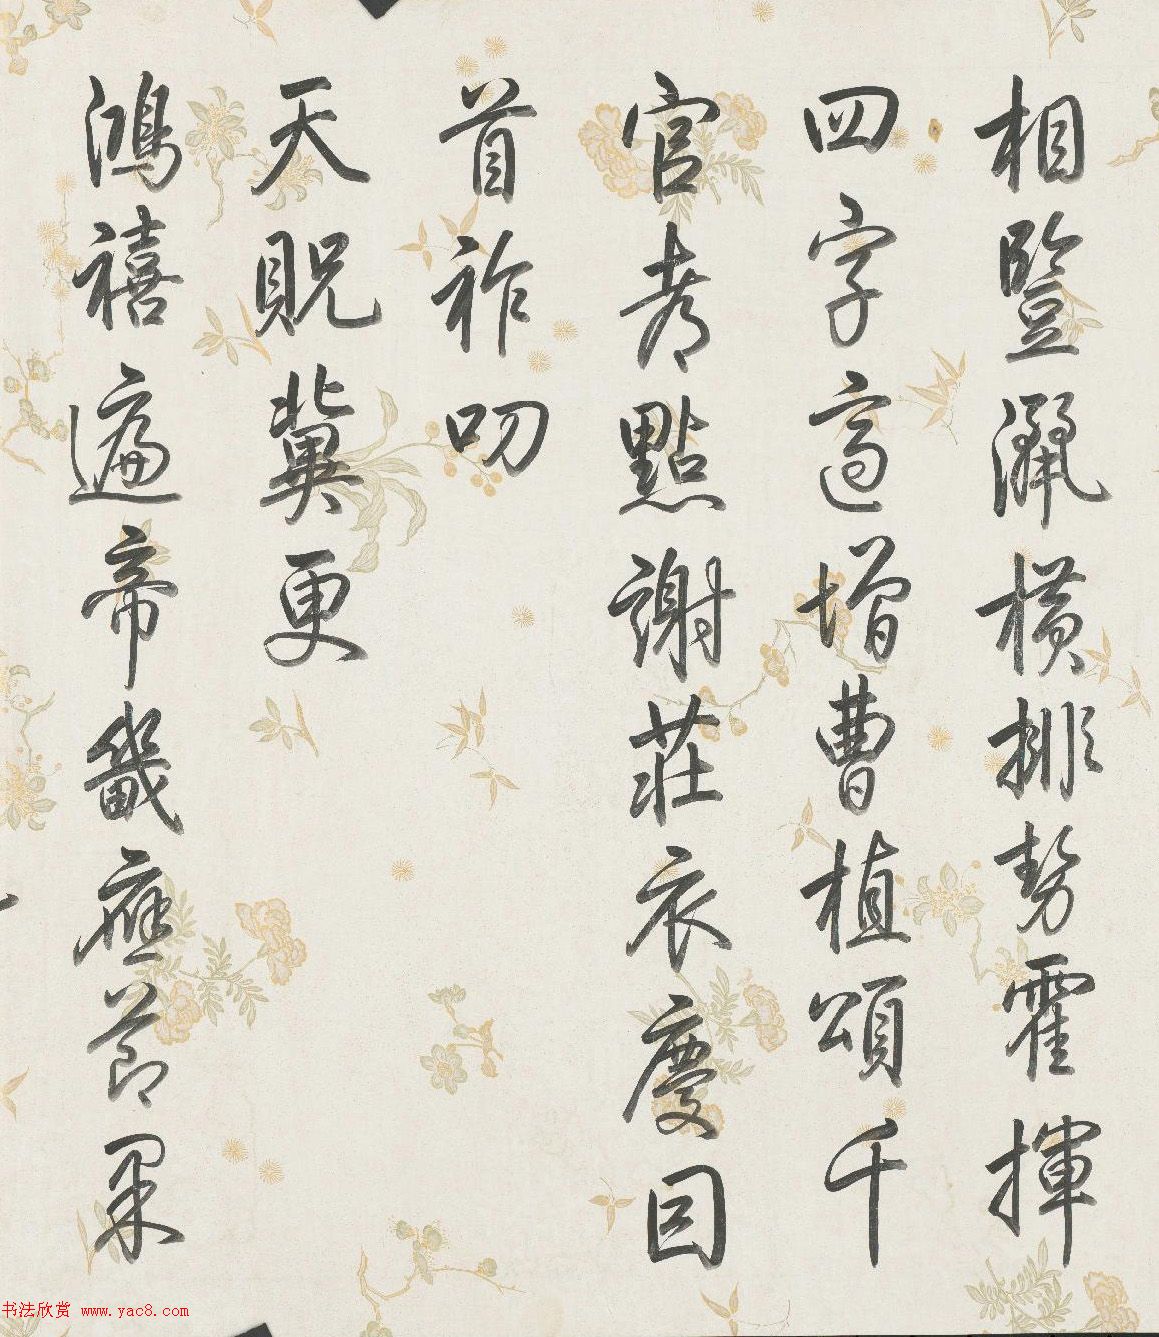 相竪灑橫排勢霍揮
四字適增曹植頌千
官考點謝莊衣慶因
首祚叨
天貺冀更
鴻禧遍帝畿應節
书法欣赏 www.yac8.com